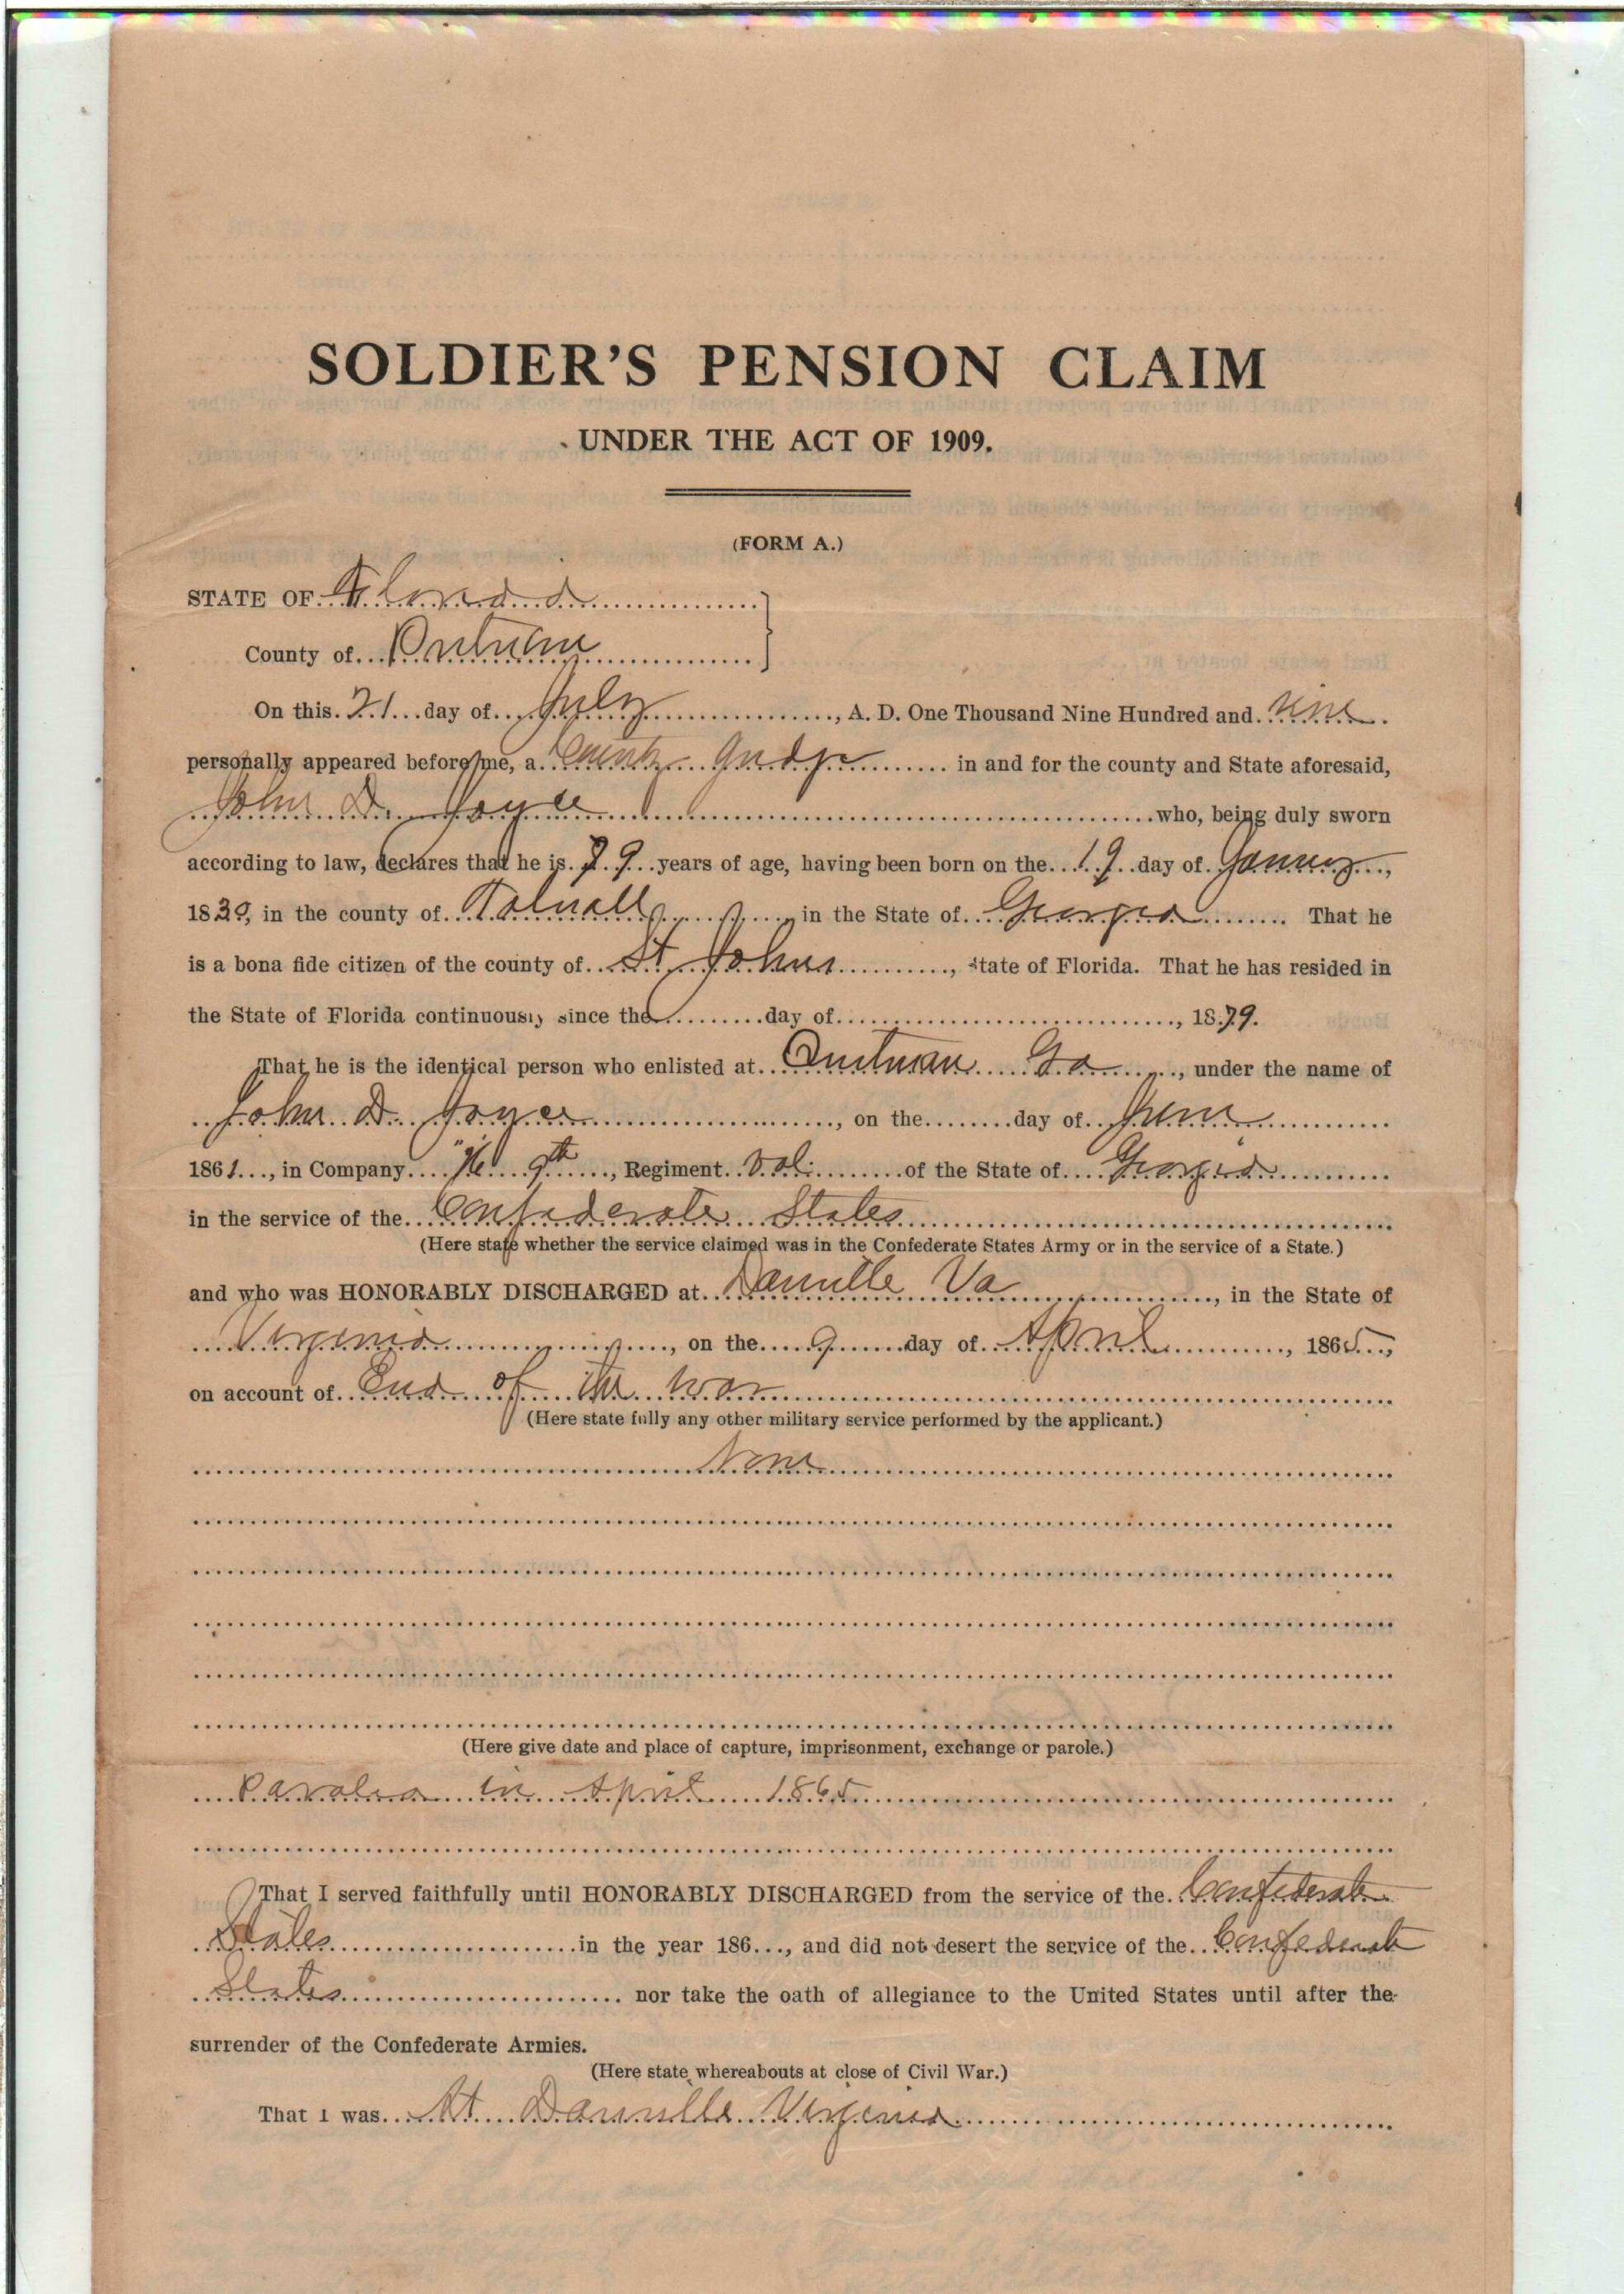 SOLDIER'S PENSION CLAIM
UNDER THE ACT OF 1909.
(FORM A.)
STATE OF Florida
County of Putnam
On this 21 day of July, A. D. One Thousand Nine Hundred and nine
personally appeared before me, a County Judge in and for the county and State aforesaid,
John D. Joyce who, being duly sworn
according to law, declares that he is 79 years of age, having been born on the 19 day of
1830, in the county of in the State of Georgia. That he
is a bona fide citizen of the county of St Johns, State of Florida. That he has resided in
the State of Florida continuously since the day of, 1879.
That he is the identical person who enlisted at Quitman Ga, under the name of
John D. Joyce, on the day of June
1861, in Company 9th, Regiment Vol. of the State of Georgia
in the service of the Confederate States
(Here state whether the service claimed was in the Confederate States Army or in the service of a State.)
and who was HONORABLY DISCHARGED at Danville Va, in the State of
Virginia, on the 9 day of April, 1865,
on account of End of the War
(Here state fully any other military service performed by the applicant.)
None
(Here give date and place of capture, imprisonment, exchange or parole.)
Paroled in April 1865
That I served faithfully until HONORABLY DISCHARGED from the service of the Confederate
States in the year 186..., and did not desert the service of the Confederate
States nor take the oath of allegiance to the United States until after the
surrender of the Confederate Armies.
(Here state whereabouts at close of Civil War.)
That I was At Danville Virginia